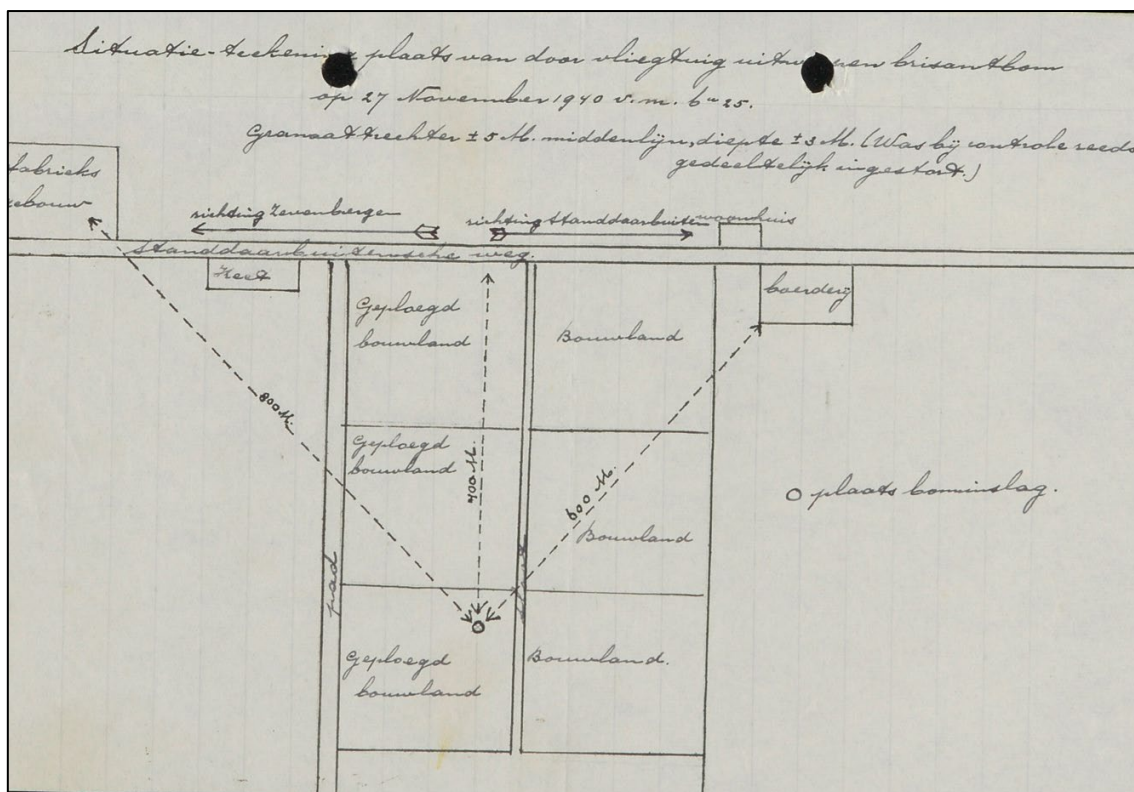 Situatie-teekening plaats van door vliegtuig uitworpen brisantbom
op 27 November 1940 v.m. 6 u 25.
Granaattrechter ± 5 M. middenlijn, diepte ± 3 M. (Was bij controle reeds
gedeeltelijk ingestort.)
fabrieks
gebouw
richting Zevenbergen
richting Standdaarbuiten
wagenhuis
Standdaarbuitensche weg.
Keet
boerderij
Geploegd
bouwland
Bouwland
800 M.
Geploegd
bouwland
400 M.
600 M.
O plaats bominslag.
Bouwland
pad
sloot
Geploegd
bouwland
Bouwland.